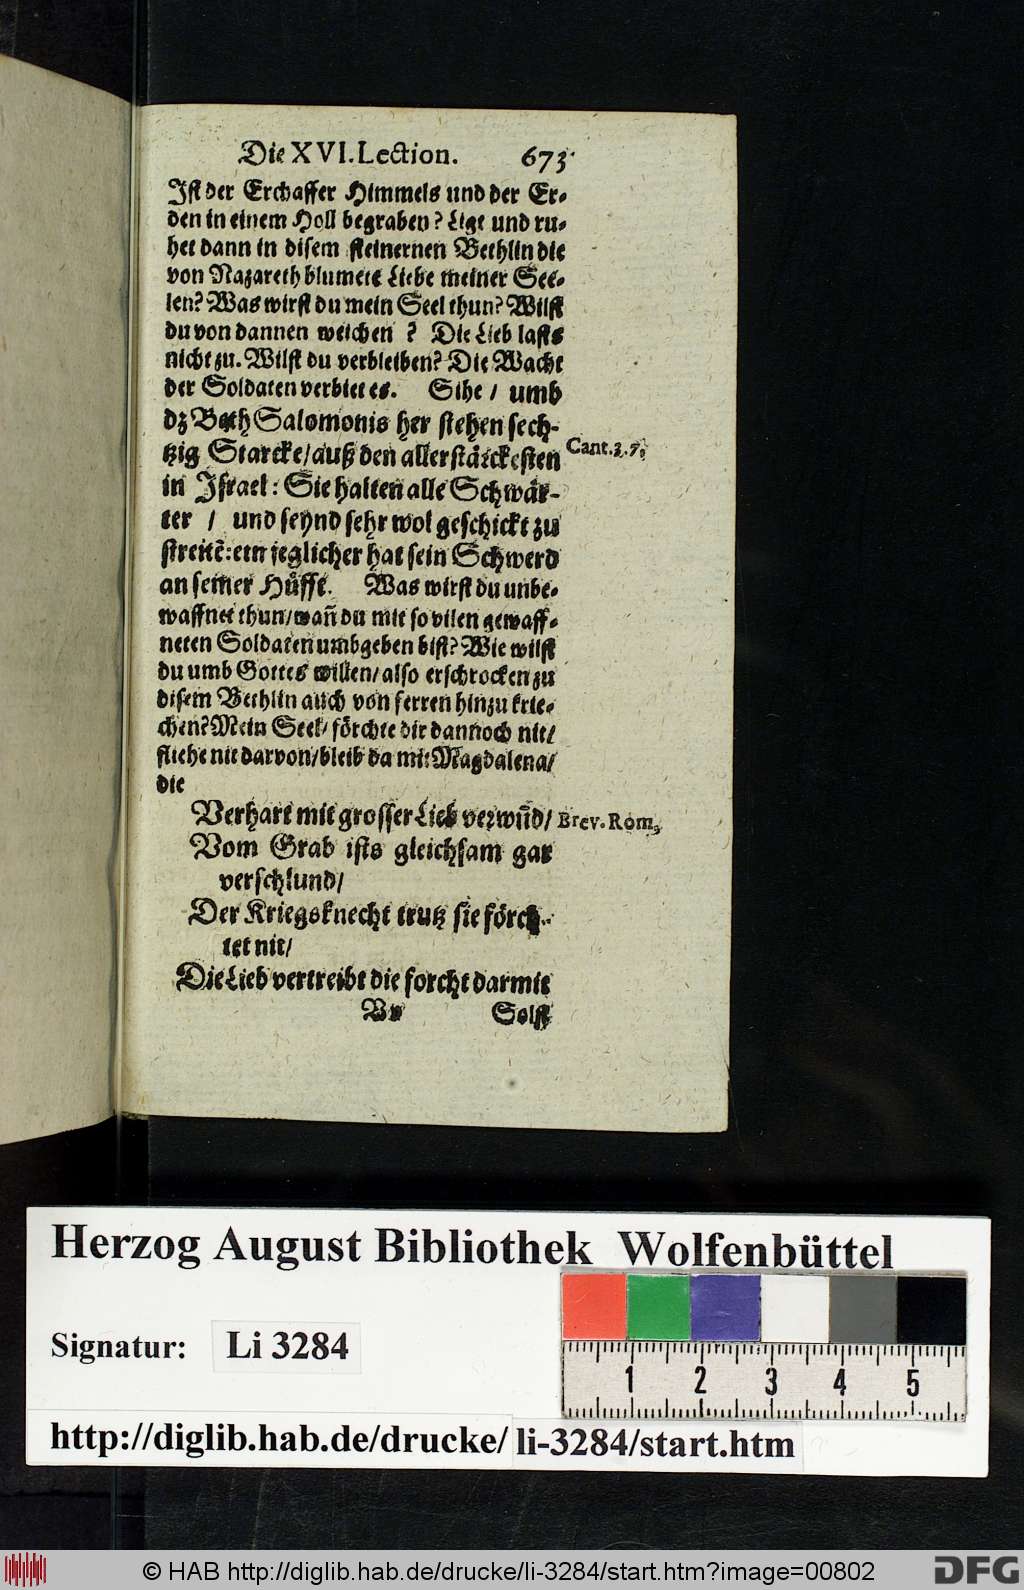 Die XVI. Lection. 673
Ist der Erchaffer Himmels und der Er-
den in einem Holl begraben? Lige und ru-
het dann in disem steinernen Bethlin die
von Nazareth blumete Liebe meiner See-
len? Was wirst du mein Seel thun? Wilst
du von dannen weichen ? Die Lieb lasts
nicht zu. Wilst du verbleiben? Die Wacht
der Soldaten verbiet es. Sihe / umb
dz Beth Salomonis her stehen sech-
tzig Starcke/ auß den allerstärckesten
Cant. 3. 7.
in Israel: Sie halten alle Schwär-
ter / und seynd sehr wol geschickt zu
streitē: ein jeglicher hat sein Schwerd
an seiner Hüfft. Was wirst du unbe-
waffnet thun/ wañ du mit so vilen gewaff-
neten Soldaten umbgeben bist? Wie wilst
du umb Gottes willen/ also erschrocken zu
disem Bethlin auch von ferren hinzu krie-
chen? Mein Seel/ förchte dir dannoch nit/
fliehe nit darvon/ bleib da mit Magdalena/
die
Verhart mit grosser Lieb verwũd/ Brev. Rom.
Vom Grab ists gleichsam gar
verschlund/
Der Kriegsknecht trutz sie förch-
tet nit/
Die Lieb vertreibt die forcht darmit
Vv Solst
Herzog August Bibliothek Wolfenbüttel
Signatur: Li 3284
1 2 3 4 5
http://diglib.hab.de/drucke/ li-3284/start.htm
© HAB http://diglib.hab.de/drucke/li-3284/start.htm?image=00802
DFG